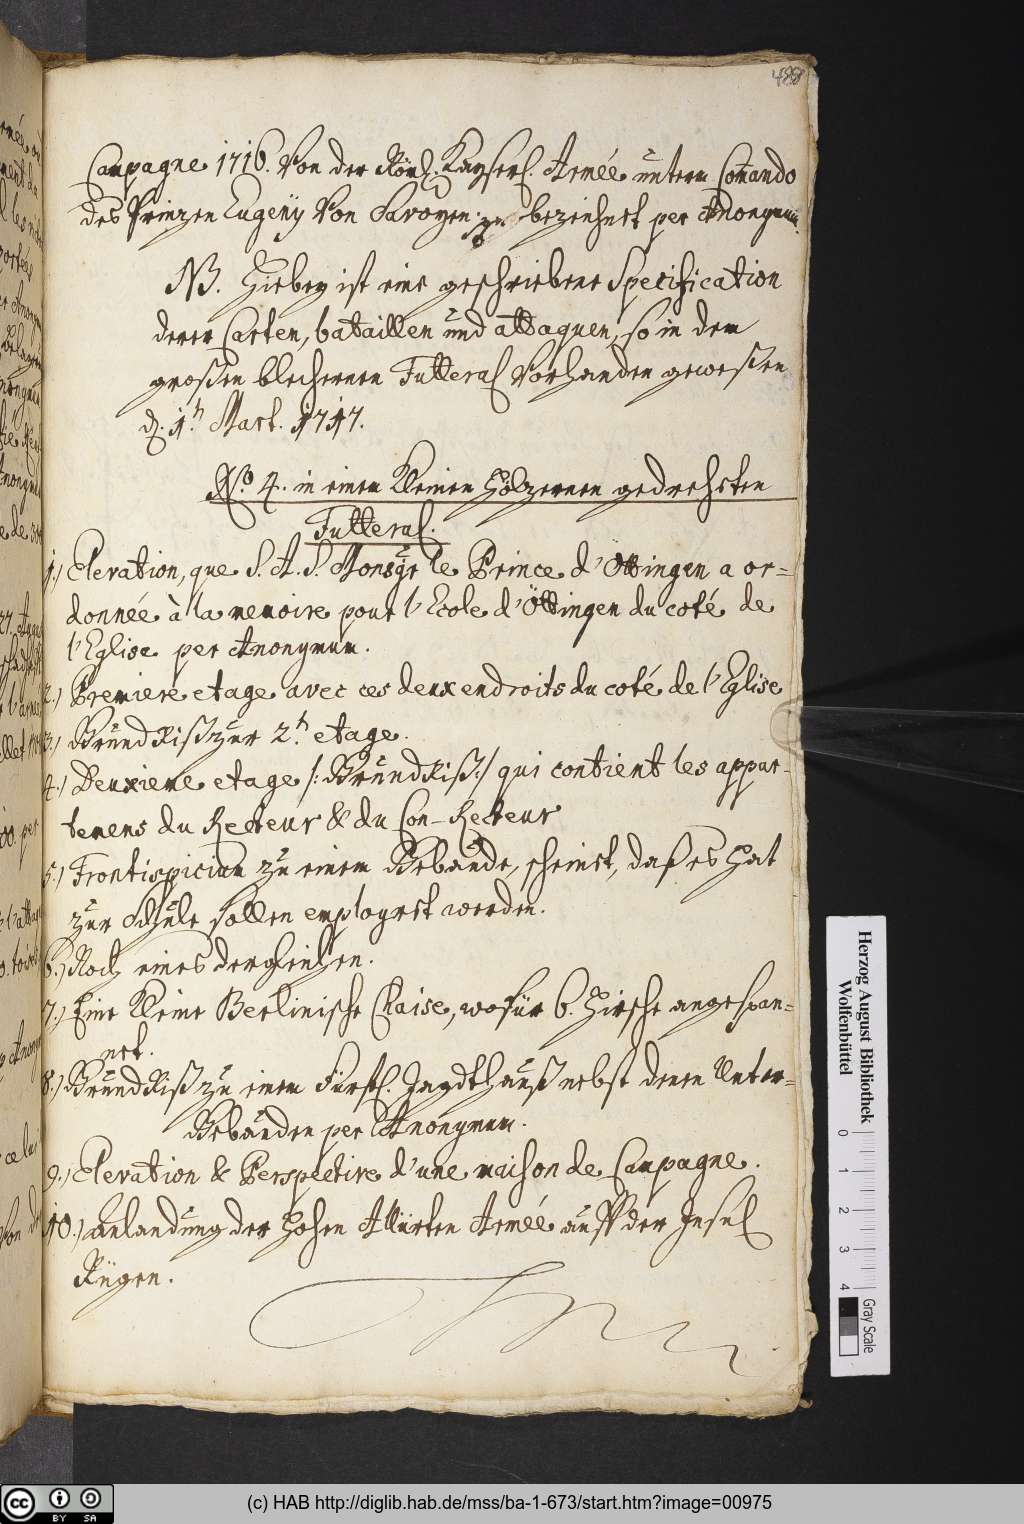 488
Campagne 1716. Von der Röml. Kayserl. Armée unterm Com̄ando
des Prinzen Eugenÿ Von Savoyen. bezeichnet per Anonymum.
NB. Hiebey ist eine geschriebene Specification
derer Carten, bataillen und attaquen, so in dem
großen blechernen Futteral Vorhanden geweßen
d. 1t. Mart. 1717.
No. 4. in einem Kleinen Höltzernen gedreheten
Futteral.
1.) Elevation, que S. A. S. Monsgr le Prince d'Ottingen a or=
donnée à la memoire pour l'Ecole d'Öttingen du coté de
l'Eglise per Anonymum.
2.) Premiere etage avec ces deux endroits du coté de l'Eglise
3.) Grund Riß zur 2t. etage.
4.) Deuxieme etage /: Grund Riß :/ qui contient les appar-
temens du Recteur & du Con-Recteur
5.) Frontispicium zu einem Gebäude, scheinet, daß es hat
zur Schule sollen employret werden.
6.) Noch eines dergleichen.
7.) Eine Kleine Berlinische Chaise, wofür 6. Hirsche angespan=
net.
8.) Grund Riß zu einem Fürstl. Jagdthauß nebst denen Unter=
Gebäuden per Anonymum.
9.) Elevation & Perspective d'une maison de Campagne.
10.) Anlandung der hohen Alliirten Armée auff der Insel
Rügen.
Herzog August Bibliothek
Wolfenbüttel
0 1 2 3 4
Gray Scale
(c) HAB http://diglib.hab.de/mss/ba-1-673/start.htm?image=00975
cc BY SA